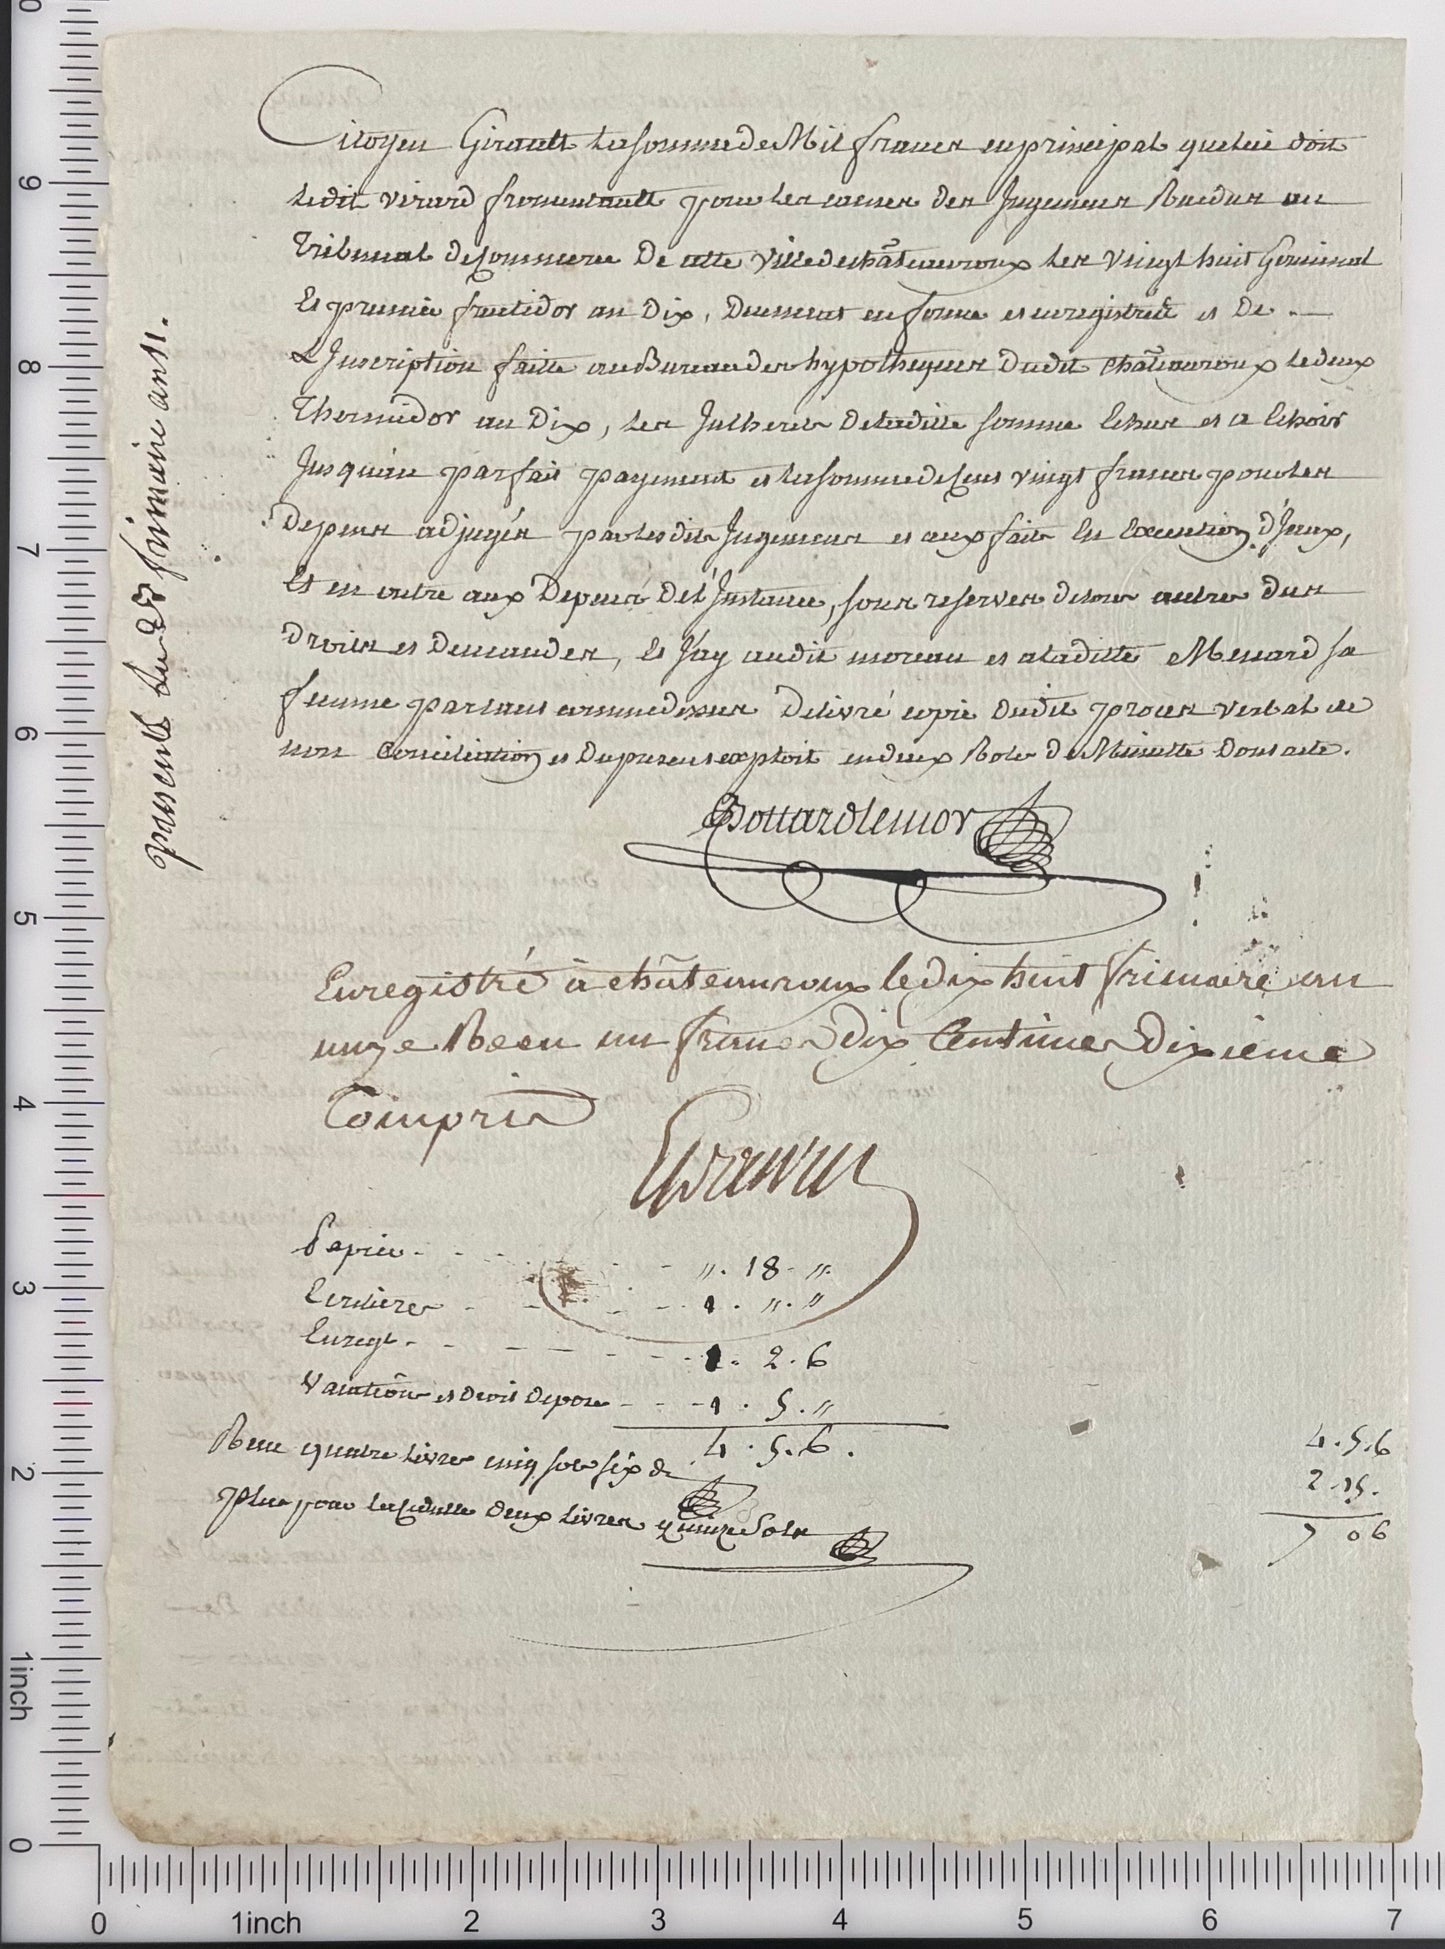 Citoyen Girault la somme de Mil francs en principal que lui doit
ledit virard fromentault pour les causes des Jugemens Rendus au
Tribunal de Commerce de cette ville de châteauroux les vingt huit Germinal
et premier fructidor an Dix, Duement en forme et enregistrés et De
L'Inscription faitte au Bureau des hypotheques dudit châteauroux le deux
Thermidor an Dix, les Intherets de laditte somme Echus et a Echoir
Jusqu'au parfait payement et la somme de Cent vingt francs pour les
Depens adjugés par lesdits Jugemens et aux frais En Execution d'Iceux,
Et en outre aux Depens De L'Instance, sous reserves de tous autres Dus
Droits et Demandes, Et J'ay audit moreau et a laditte Menard sa
femme parlant comme dessus Delivré copie dudit procès verbal de
non Conciliation et du present exploit en deux Roles de Minutte Dont acte.
Bottard lenior
Enregistré à châteauroux le dix huit frimaire an
onze Recu un franc dix Centimes dixieme
Compris
Papier - - - „. 18. „.
- - - 1. „. „
Enregt. - - - 1. 2. 6
Vacation et Droit De pose - - - 1. 5. „
4. 5. 6.
Recu quatre Livres cinq sols six d.
plus pour la Cedulle Deux Livres quinze Sols
4. 5. 6
2. 15.
7 0 6
frimaire an 11.
0
9
8
7
6
5
4
3
2
1inch
0
0 1inch 2 3 4 5 6 7